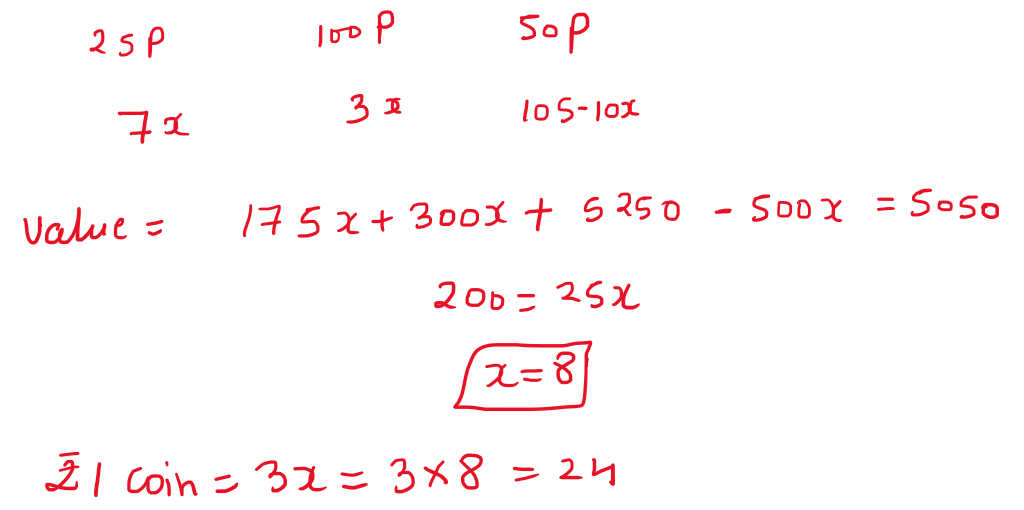 25P 100P 50P
7x 3x 105-10x
Value = 175x + 300x + 5250 - 500x = 5050
200 = 25x
x = 8
₹1 coin = 3x = 3×8 = 24